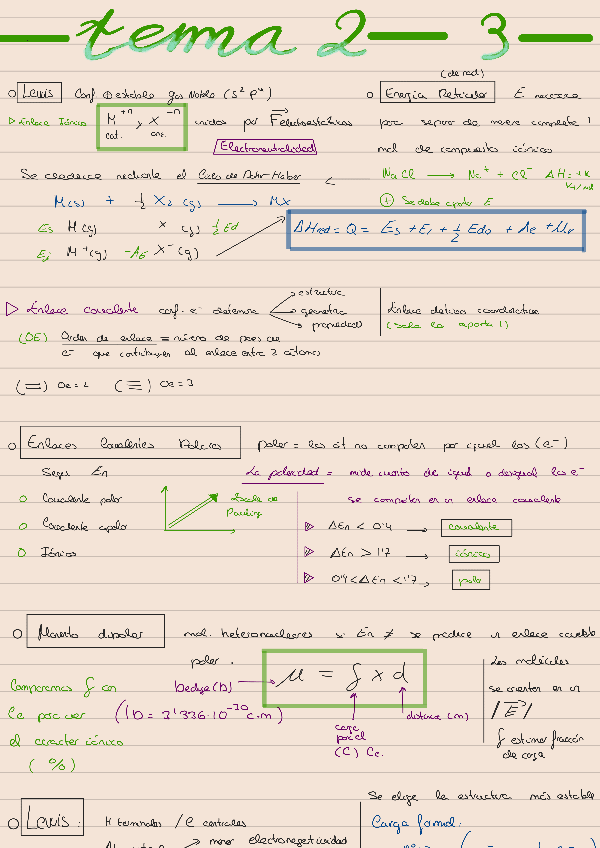 tema 2 - 3
Lewis Conf e⁻ estable gas Noble (s² p⁶)
(de red)
Energía Reticular E. necesaria
▷ Enlace Iónico M⁺ⁿ y X⁻ⁿ unidos por F electrostáticas
cat. ani.
para separar de manera completa 1
Electroneutralidad
mol de compuesto iónico
Se obedece mediante el Ciclo de Born-Haber
NaCl → Na⁺ + Cl⁻ ΔH = +K
KJ/mol
M(s) + 1/2 X₂ (g) → MX
(+) Se debe aportar E
Es M(g) X (g) 1/2 Ed
ΔHred = Q = Es + EI + 1/2 Ed + Ae + Ur
Ei M⁺(g) -AE X⁻(g)
▷ Enlace covalente conf. e⁻ determina
estructura
geometría
propiedades
Enlace dativo coordinativo
(solo lo aporta 1)
(OE) Orden de enlace = número de pares de
e⁻ que contribuyen al enlace entre 2 átomos
(=) Oe = 2 (≡) Oe = 3
Enlaces Covalentes Polares polar = los át no comparten por igual los (e⁻)
Según En
La polaridad = mide cuanto de igual o desigual los e⁻
se comparten en un enlace covalente
Covalente polar
Escala de
Pauling
Covalente apolar
Iónico
ΔEn < 0'4 → covalente
ΔEn > 1'7 → iónico
0'4 < ΔEn < 1'7 → polar
Momento dipolar mol. heteronucleares si En ≠ se produce un enlace covalente
polar.
μ = f x d
Las moléculas
Comparamos f con
Debye (D)
se orientan en un
|E|
Ce para ver (1D = 3'336·10⁻³⁰ C·m)
distancia (m)
carga
parcial
(C) Ce.
el carácter iónico
(%)
f estima fracción
de carga
Se elige la estructura más estable
Lewis: H terminales / C centrales
Carga formal:
menor electronegatividad